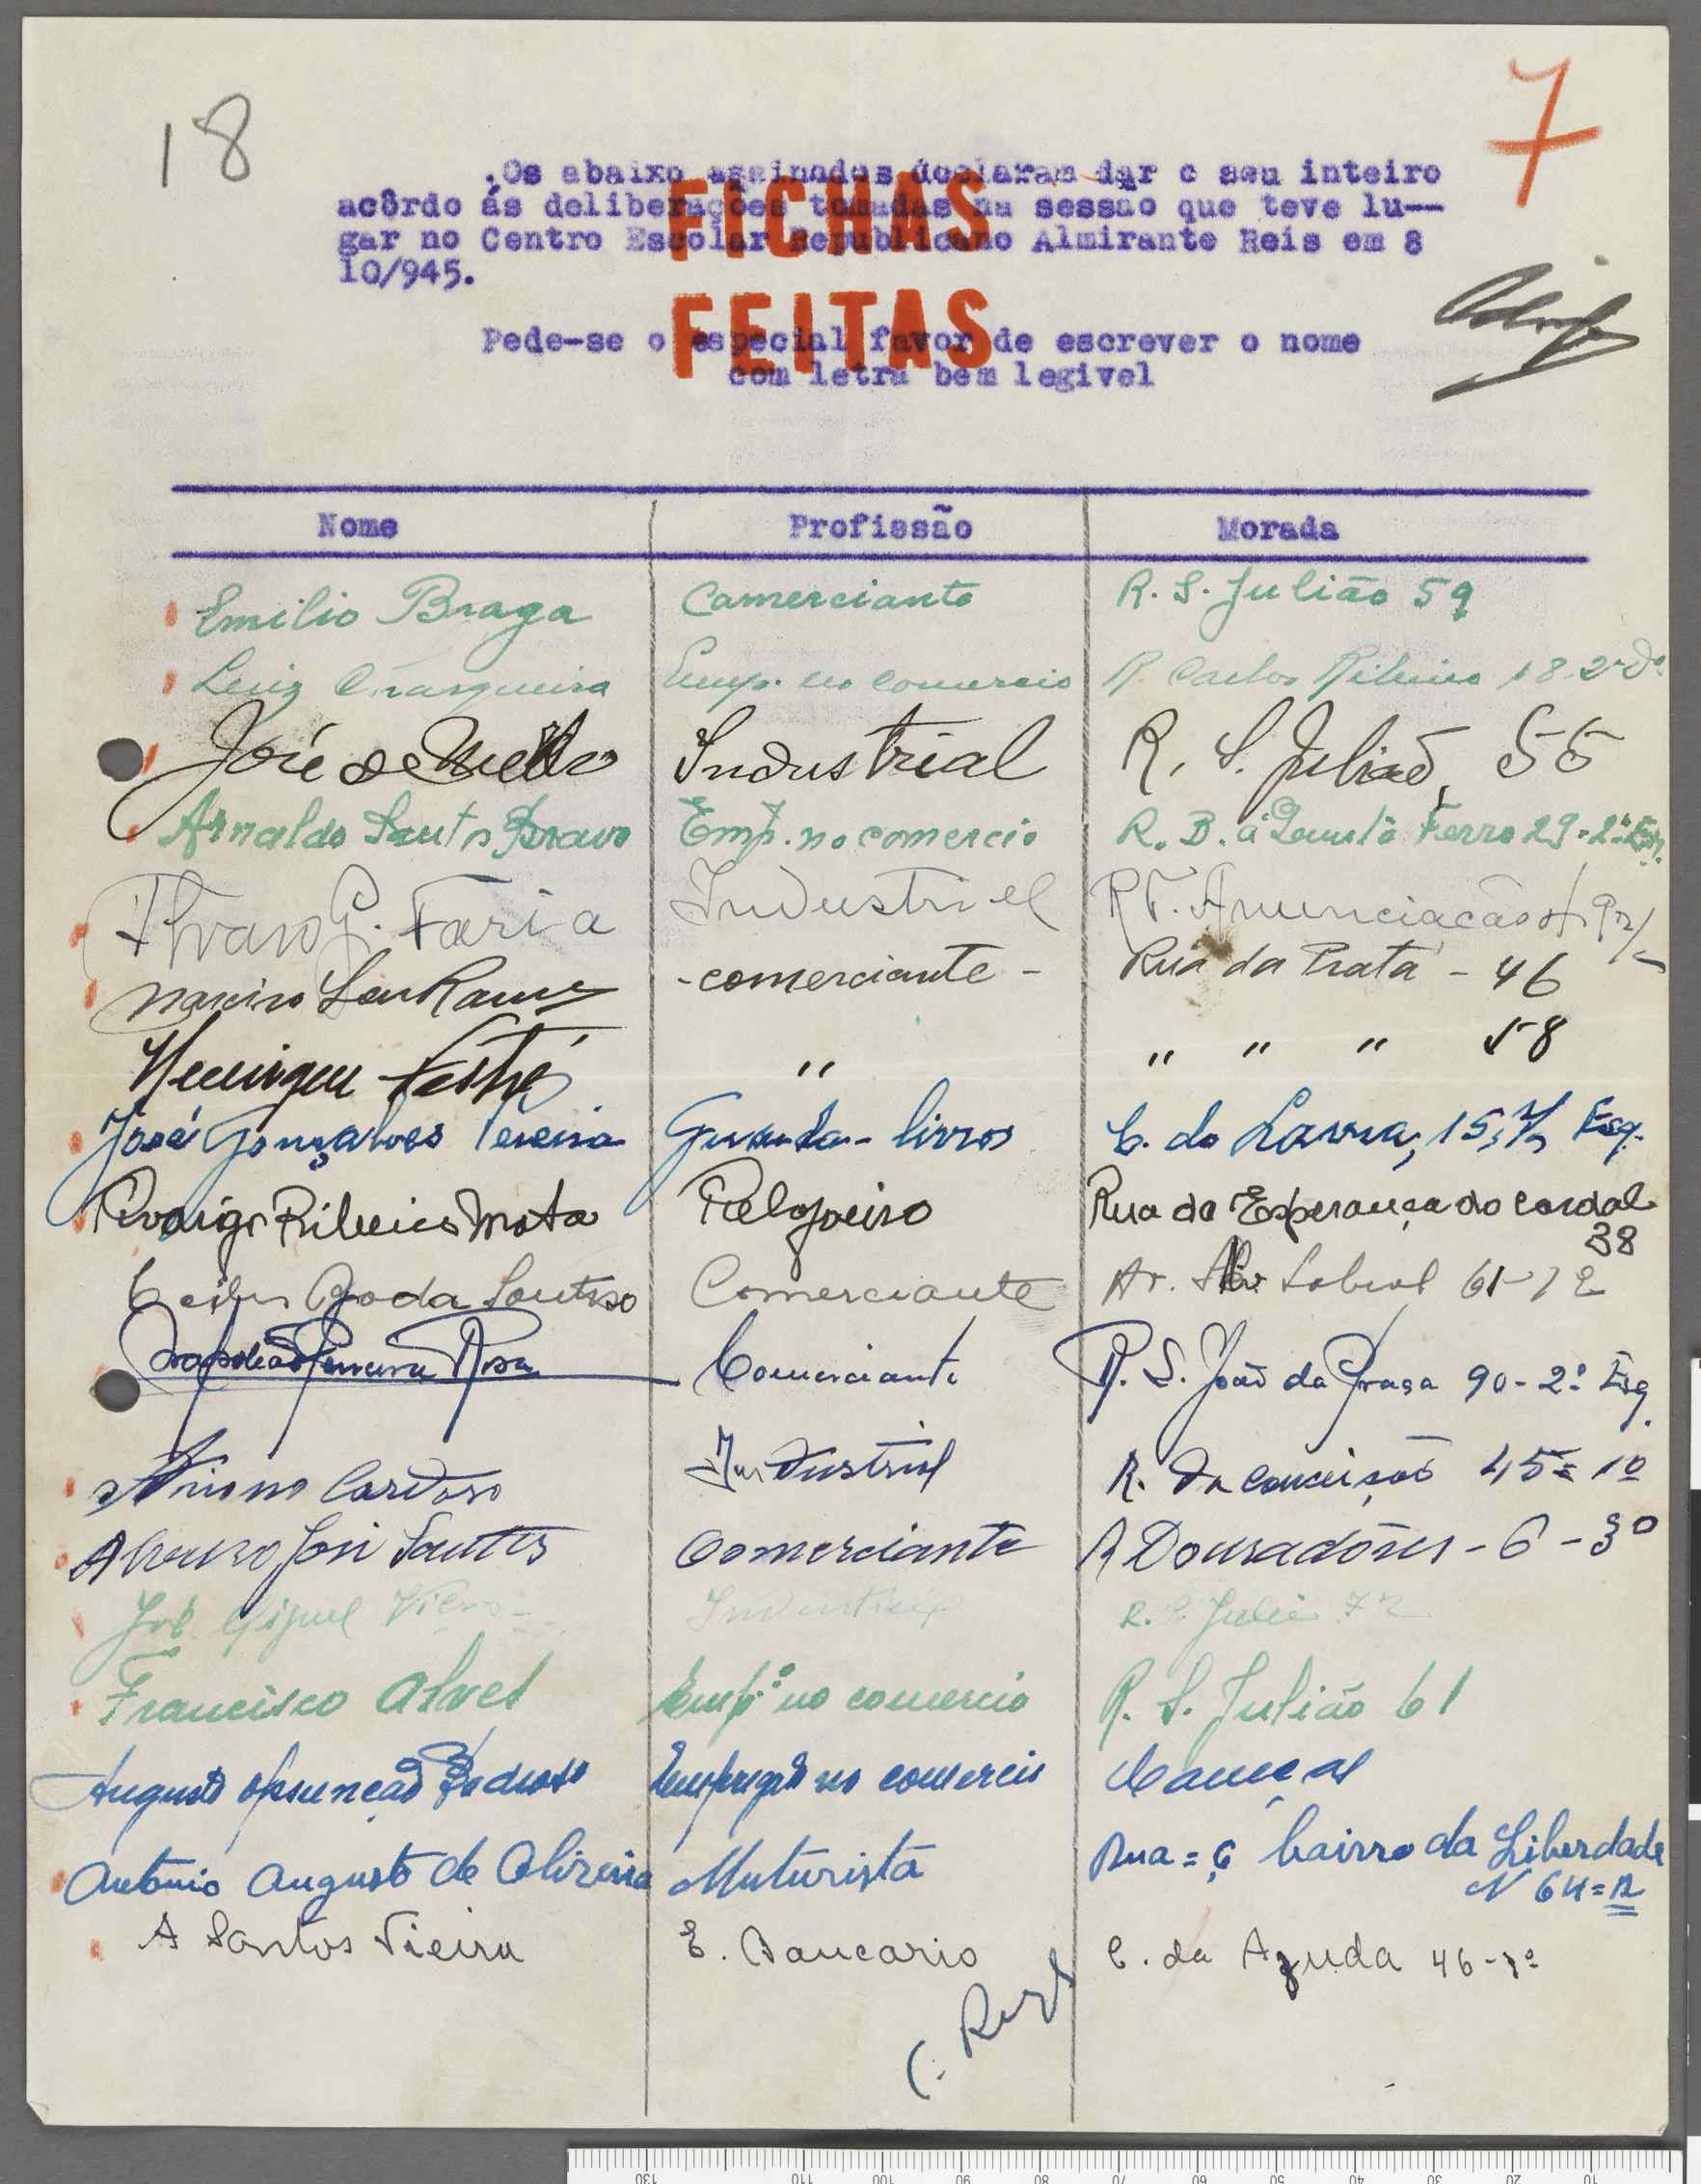 18
7
.Os abaixo assinados declaram dar o seu inteiro
acôrdo ás deliberações tomadas na sessão que teve lu--
gar no Centro Escolar Republicano Almirante Reis em 8
10/945.
FICHAS
FEITAS
Pede-se o especial favor de escrever o nome
com letra bem legivel
Nome Profissão Morada
Emilio Braga Comerciante R. S. Julião 59
Luiz Emp. no comercio R. Carlos Ribeiro 18-2º Dº
José de Mello Industrial R. S. Julião, 55
Arnaldo Santos Bravo Emp. no comercio R. B. á Ferro 29-2º Esq.
Alvaro G. Faria Industriel Anunciacão
Ramos -comerciante- Rua da Prata - 46
Henrique " " " " 58
José Gonçalves Pereira Guarda-livros C. do Lavra, 15, Esq.
Rodrigo Ribeiro Mota Relojoeiro Rua da Esperança do Cardal
38
Goda Comerciante Av. Sobral 61-
Napoleão Ferreira Rosa Comerciante R. S. João da Praça 90-2º Esq.
Cardoso Industrial R. da Conceição 45=1º
José Santos Comerciante R Douradores-6-3º
José Miguel R. S. 72
Francisco Alves Empº no comercio R. S. Julião 61
Augusto Assunção Pedroso Empregado no comercio
Antonio Augusto de Oliveira Muturista Rua = 6 bairro da Liberdade
N 64=
A Santos Vieira E. Bancario C. da Ajuda 46-